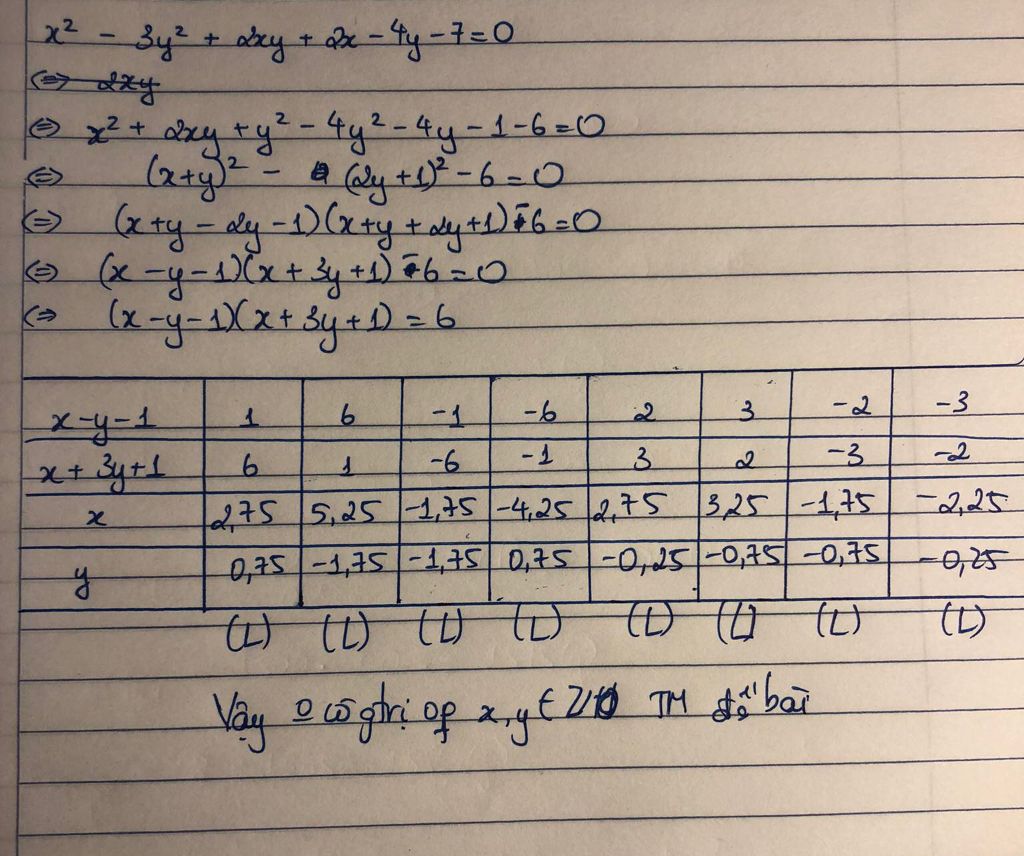 x² - 3y² + 2xy + 2x - 4y - 7 = 0
⇔ 2xy
⇔ x² + 2xy + y² - 4y² - 4y - 1 - 6 = 0
⇔ (x+y)² - (2y+1)² - 6 = 0
⇔ (x+y - 2y - 1)(x+y + 2y+1) - 6 = 0
⇔ (x - y - 1)(x + 3y + 1) - 6 = 0
⇔ (x - y - 1)(x + 3y + 1) = 6
x - y - 1 1 6 -1 -6 2 3 -2 -3
x + 3y + 1 6 1 -6 -1 3 2 -3 -2
x 2,75 5,25 -1,75 -4,25 2,75 3,25 -1,75 -2,25
y 0,75 -1,75 -1,75 0,75 -0,25 -0,75 -0,75 -0,25
(L) (L) (L) (L) (L) (L) (L) (L)
Vậy có gtrị x, y ∈ Z TM bài